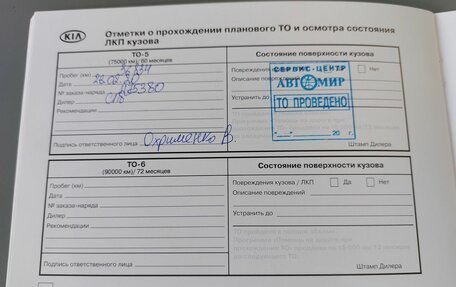 KIA Отметки о прохождении планового ТО и осмотра состояния
ЛКП кузова
ТО-5
(75000 км)/ 60 месяцев
Состояние поверхности кузова
Пробег (км)
Повреждения Нет
Дата
Описание поврежд
№ заказа-наряда 125380
Дилер
Устранить до
Рекомендации
СЕРВИС-ЦЕНТР
АВТОМИР
ТО ПРОВЕДЕНО
20 г.
Подпись ответственного лица Охрименко В.
Штамп Дилера
ТО-6
(90000 км)/ 72 месяцев
Состояние поверхности кузова
Пробег (км)
Повреждения кузова / ЛКП Да Нет
Дата
Описание повреждений
№ заказа-наряда
Дилер
Устранить до
Рекомендации
Подпись ответственного лица
Штамп Дилера